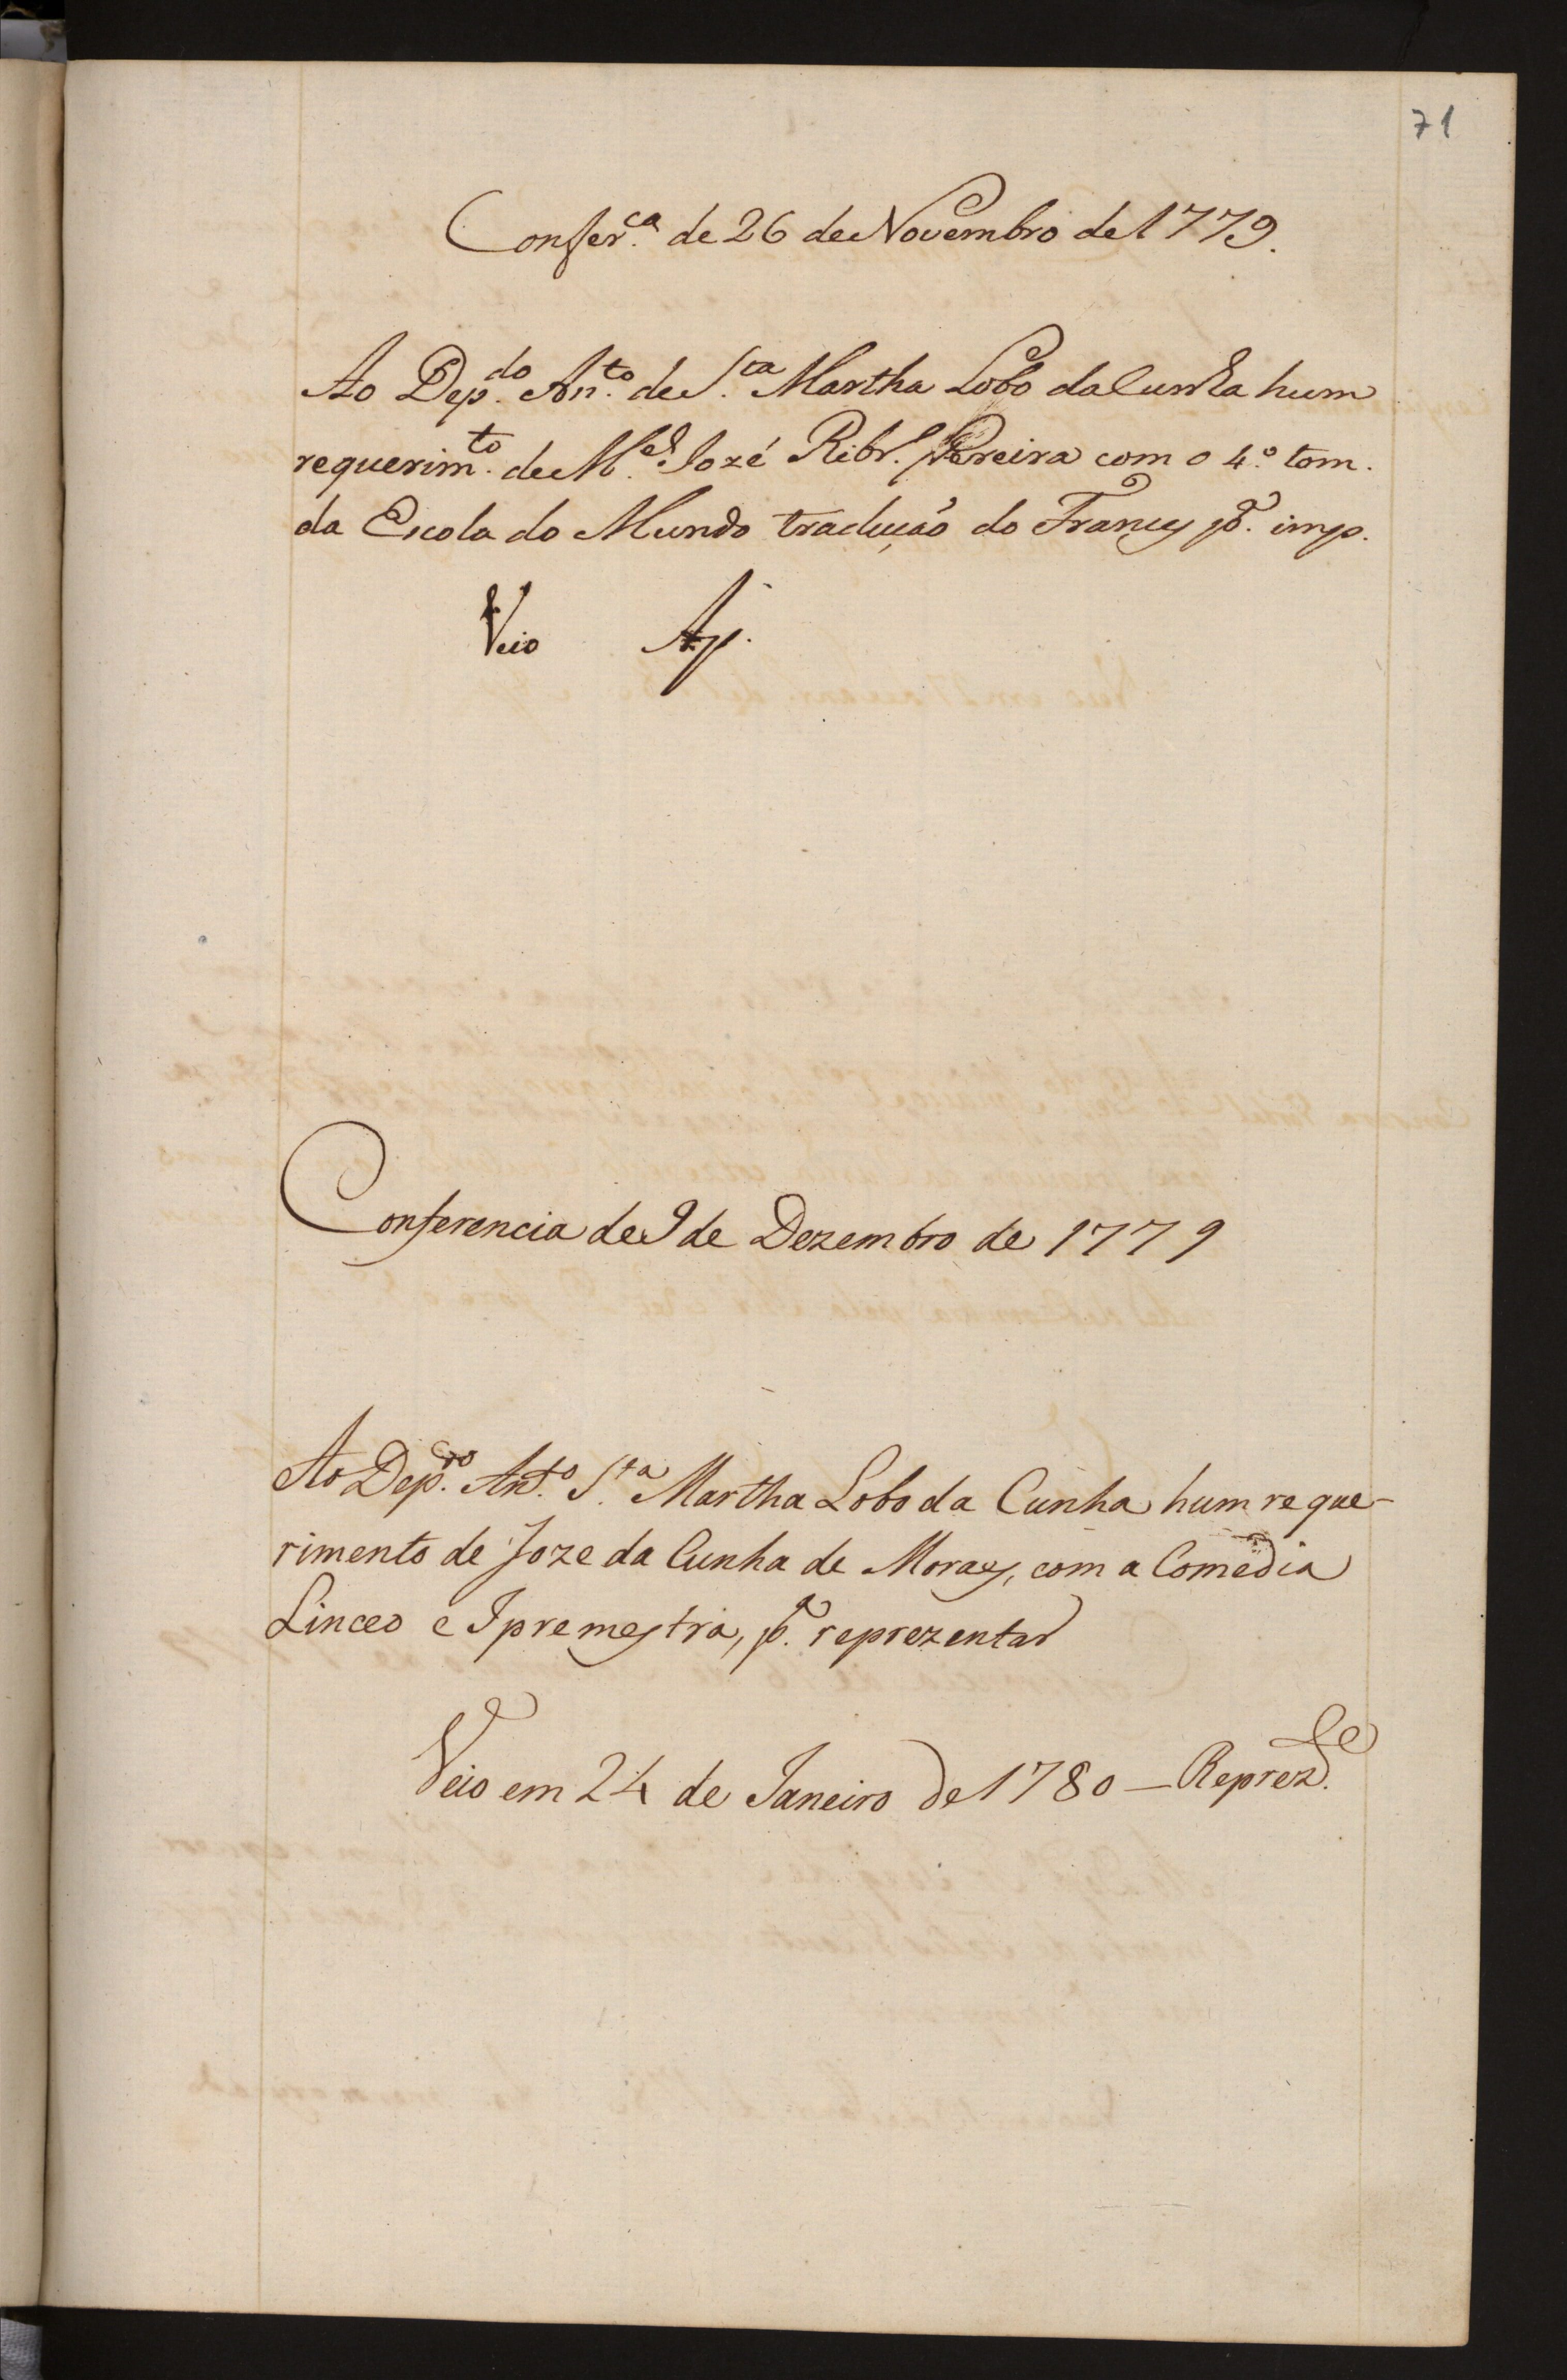 71
Confer.ca de 26 de Novembro de 1779.
Ao Dep.do An.to de S.ta Martha Lobo da Cunha hum
requerim.to de M.el Jozé Ribr.o Pereira com o 4.o tom.
da Escola do Mundo tradução do Francy p.a imp.
Veio Ap.
Conferencia de 9 de Dezembro de 1779
Ao Dep.do Ant.o S.ta Martha Lobo da Cunha hum reque-
rimento de Joze da Cunha de Moraes, com a Comedia
Linceo e Ipremestra, p.a reprezentar
Veio em 24 de Janeiro de 1780 — Reprez.de